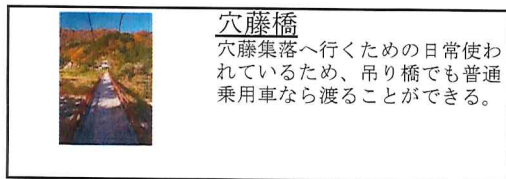 穴藤橋
穴藤集落へ行くための日常使わ
れているため、吊り橋でも普通
乗用車なら渡ることができる。